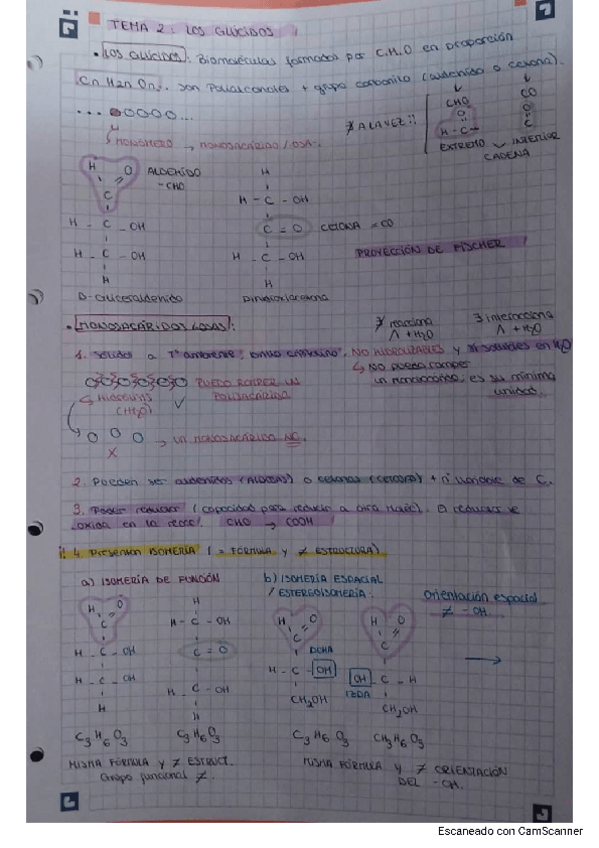 TEMA 2: LOS GLÚCIDOS
• LOS GLÚCIDOS: Biomoléculas formadas por C.H.O en proporción
Cn H2n On. Son Polialcoholes + grupo carbonilo (aldehído o cetona).
...OOOOO...
MONÓMERO → MONOSACÁRIDO / OSA.
* A LA VEZ!!
CHO
CO
O
H - C -
C
EXTREMO
INTERIOR
CADENA
H O
C
ALDEHÍDO
- CHO
H - C - OH
H - C - OH
H
D-Gliceraldehído
H
H - C - OH
C = O
CETONA = CO
H - C - OH
H
Dihidroxiacetona
PROYECCIÓN DE FISCHER
• MONOSACÁRIDOS
reacciona
+ H2O
interacciona
+ H2O
1. Sólidos a Tª ambiente, NO HIDROLIZABLES y solubles en H2O
NO puedo romper
un monosacárido, es su mínima
unidad.
PUEDO ROMPER UN
POLISACÁRIDO
HIDRÓLISIS
(H2O)
O O O → UN MONOSACÁRIDO NO.
X
2. Pueden ser aldehídos (ALDOSAS) o cetonas (CETOSAS) + nº variable de C.
3. Poder reductor (capacidad para reducir a otra moléc). El reductor se
oxida en la CHO → COOH
4. Presentan ISOMERÍA (= FÓRMULA y ≠ ESTRUCTURA)
a) ISOMERÍA DE FUNCIÓN
b) ISOMERÍA ESPACIAL
/ ESTEREOISOMERÍA.
Orientación espacial
≠ - OH
H O
C
H - C - OH
H - C - OH
H
C3H6O3
H
H - C - OH
C = O
H - C - OH
H
C3H6O3
H O
C
DCHA
H - C - OH
CH2OH
C3H6O3
H O
C
OH - C - H
IZDA
CH2OH
CH3H6O3
MISMA FÓRMULA Y ≠ ESTRUCT.
Grupo funcional ≠.
MISMA FÓRMULA Y ≠ ORIENTACIÓN
DEL - OH.
Escaneado con CamScanner